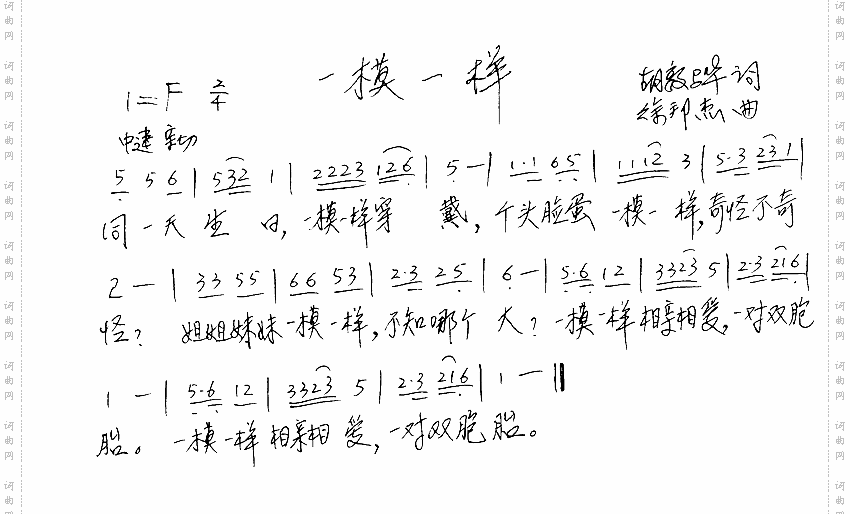 一模一样
1=F 2/4
胡敦骅 词
徐邦杰 曲
中速 亲切
5 5 6 | 5 3 2 1 | 2 2 2 3 1 2 6 | 5 — | 1·1 6 5 | 1 1 1 2 3 | 5·3 2 3 1 |
同一天 生 日, 一模一样穿 戴, 个头脸蛋 一模一样, 奇怪不奇
2 — | 3 3 5 5 | 6 6 5 3 | 2·3 2 5 | 6 — | 5·6 1 2 | 3 3 2 3 5 | 2·3 2 1 6 |
怪? 姐姐妹妹一模一样, 不知哪个 大? 一模一样相亲相爱, 一对双胞
1 — | 5·6 1 2 | 3 3 2 3 5 | 2·3 2 1 6 | 1 — ‖
胎。 一模一样相亲相 爱, 一对双胞胎。
词曲网